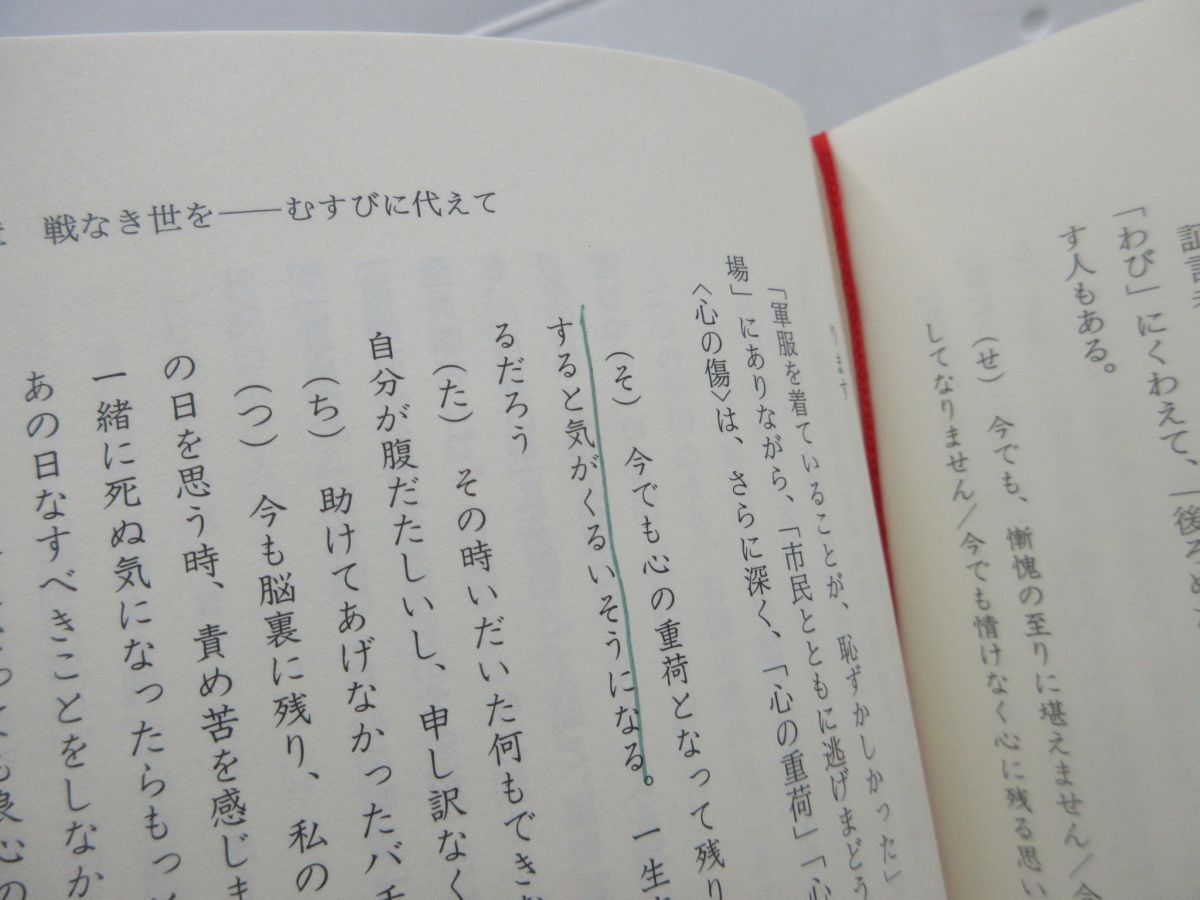 証言
「わび」にくわえて、「後ろめた
す人もある。
（せ）　今でも、慚愧の至りに堪えません／今
してなりません／今でも情けなく心に残る思い
戦なき世を――むすびに代えて
ります
「軍服を着ていることが、恥ずかしかった」
場」にありながら、「市民とともに逃げまどう
〈心の傷〉は、さらに深く、「心の重荷」「心
（そ）　今でも心の重荷となって残り
すると気がくるいそうになる。一生
るだろう
（た）　その時いだいた何もできな
自分が腹だたしいし、申し訳なく
（ち）　助けてあげなかったバチ
（つ）　今も脳裏に残り、私の
の日を思う時、責め苦を感じま
一緒に死ぬ気になったらもっと
あの日なすべきことをしなか
良心の